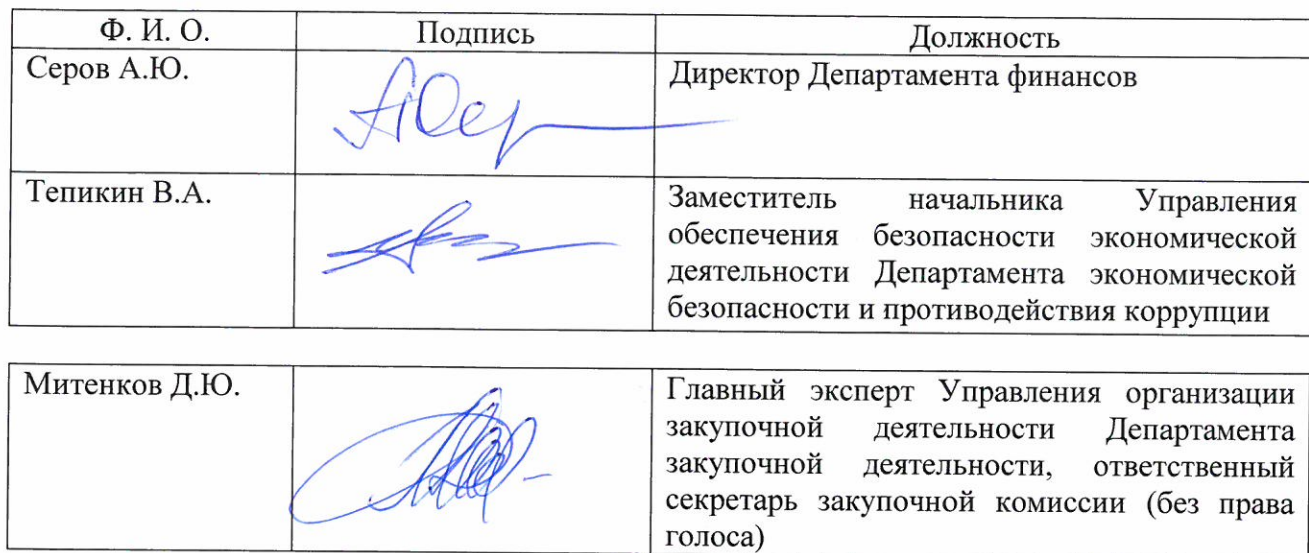 Ф. И. О. Подпись Должность
Серов А.Ю. Директор Департамента финансов
Тепикин В.А. Заместитель начальника Управления
обеспечения безопасности экономической
деятельности Департамента экономической
безопасности и противодействия коррупции
Митенков Д.Ю. Главный эксперт Управления организации
закупочной деятельности Департамента
закупочной деятельности, ответственный
секретарь закупочной комиссии (без права
голоса)